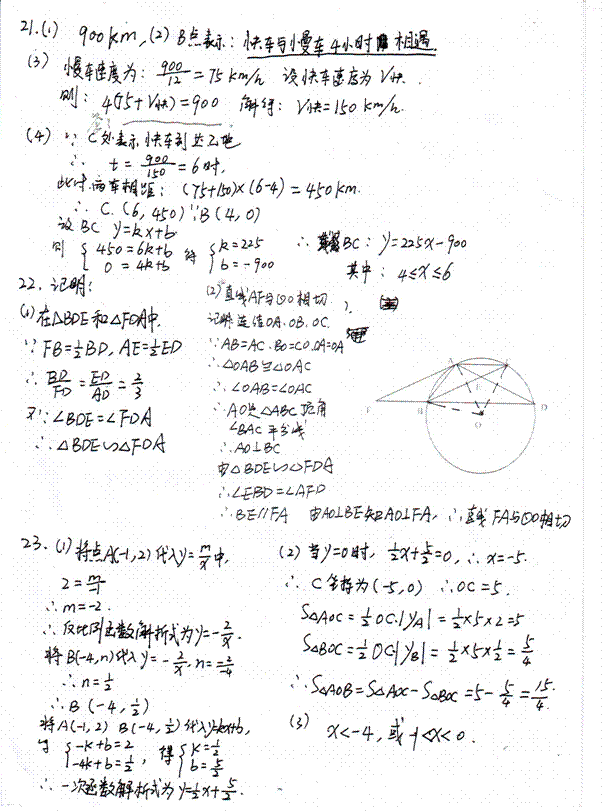 21.(1) 900km,(2) B点表示:快车与慢车4小时相遇.
(3) 慢车速度为: 900/12 = 75 km/h 设快车速度为 V快.
则: 4(75+V快)=900 解得: V快=150 km/h.
(4) ∵ C处表示快车到达乙地
∴ t = 900/150 = 6时,
此时两车相距: (75+150)×(6-4)=450km.
∴ C.(6,450) ∵B(4,0)
设BC y=kx+b
则 { 450=6k+b 0=4k+b 得 { k=225 b=-900 ∴ BC: y=225x-900
其中: 4≤x≤6
22. 证明:
(1) 在△BDE和△FDA中,
∵ FB=½BD, AE=½ED
∴ BD/FD = ED/AD = 2/3
又∵∠BDE=∠FDA
∴ △BDE∽△FDA
(2) 直线AF与⊙O相切
证明 连结OA.OB.OC.
∵AB=AC.BO=CO.OA=OA
∴ △OAB≌△OAC
∴ ∠OAB=∠OAC
∴ AO是△ABC 顶角
∠BAC 平分线
∴ AO⊥BC
由△BDE∽△FDA
∴∠EBD=∠AFD
∴BE∥FA 由AO⊥BE知AO⊥FA, ∴直线FA与⊙O相切
A
C
E
F
B
D
O
23. (1) 将点A(-1,2)代入y=m/x中,
2=m/-1
∴m=-2.
∴反比例函数解析式为y=-2/x.
将B(-4,n)代入y=-2/x, n=-2/-4
∴n=½
∴B(-4,½)
将A(-1,2) B(-4,½)代入y=kx+b,
得 { -k+b=2 -4k+b=½, 得 { k=½ b=5/2
∴一次函数解析式为y=½x+5/2.
(2) 当y=0时, ½x+5/2=0, ∴x=-5.
∴ C坐标为(-5,0) ∴OC=5.
S△AOC=½OC·|yA|=½×5×2=5
S△BOC=½OC|yB|=½×5×½=5/4
∴S△AOB=S△AOC-S△BOC=5-5/4=15/4.
(3) x<-4,或-1<x<0.